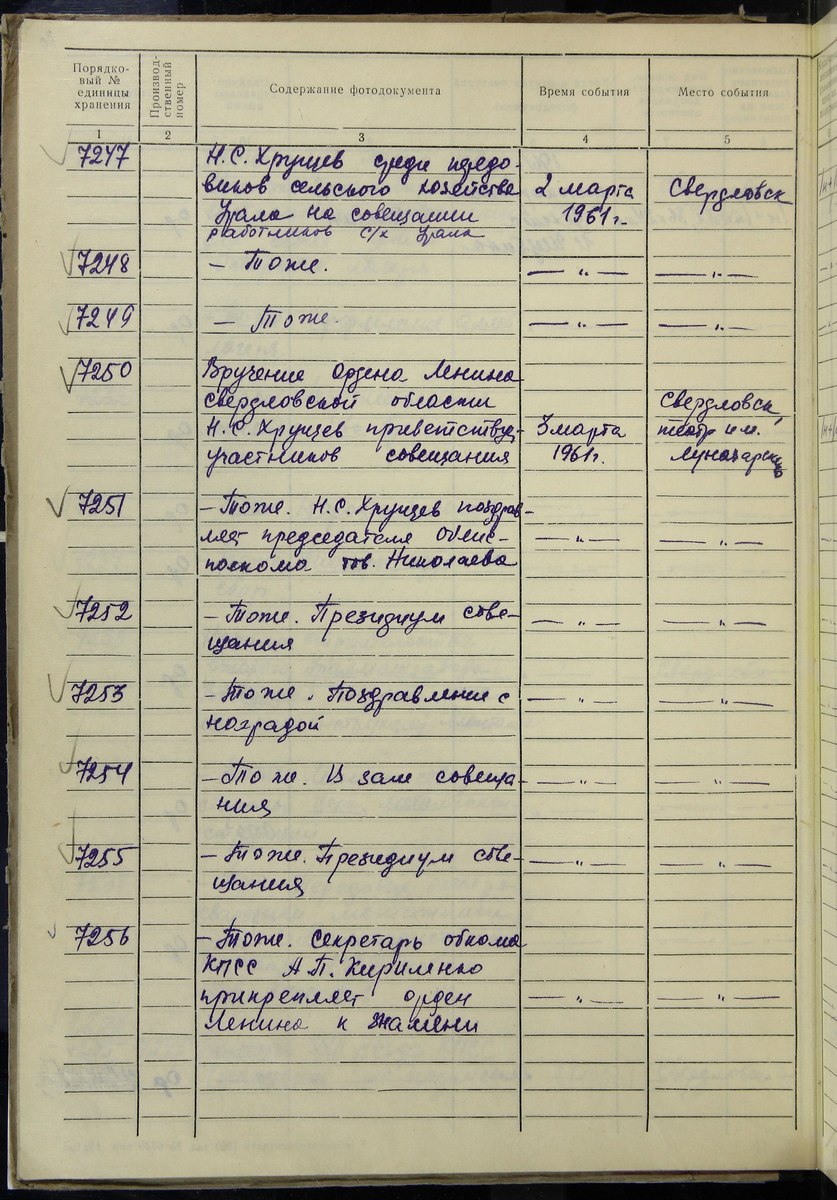 Порядко-
вый №
единицы
хранения
Производ-
ственный
номер
Содержание фотодокумента
Время события
Место события
1 2 3 4 5
7247 Н.С. Хрущев среди передо-
виков сельского хозяйства 2 марта Свердловск
Урала на совещании 1961 г.
работников с/х Урала
7248 – Тоже. — " — — " —
7249 – Тоже. — " — — " —
7250 Вручение ордена Ленина
Свердловской области Свердловск,
Н.С. Хрущев приветствует 3 марта театр им.
участников совещания 1961 г. Луначарского
7251 – Тоже. Н.С. Хрущев поздрав-
ляет председателя облис- — " — — " —
полкома тов. Николаева
7252 – Тоже. Президиум сове- — " — — " —
щания
7253 – Тоже. Поздравление с — " — — " —
наградой
7254 – Тоже. В зале совеща- — " — — " —
ния
7255 – Тоже. Президиум сове- — " — — " —
щания
7256 – Тоже. Секретарь обкома
КПСС А.П. Кириленко
прикрепляет орден — " — — " —
Ленина к знамени